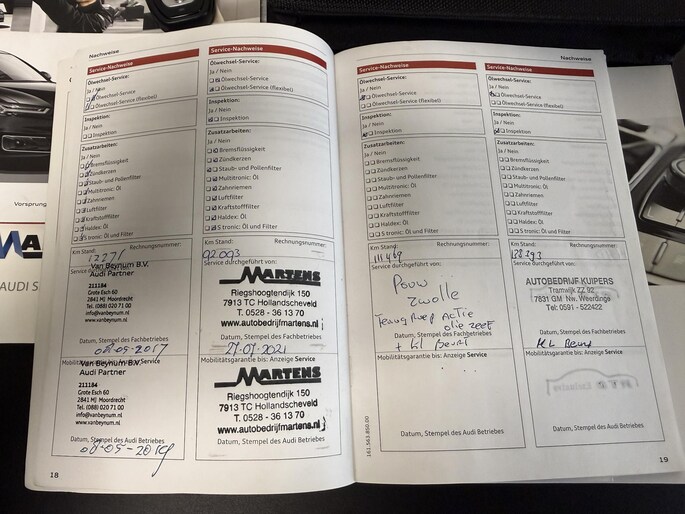 Nachweise
Service-Nachweise
Ölwechsel-Service:
Ja / Nein
Ölwechsel-Service
Ölwechsel-Service (flexibel)
Inspektion:
Ja / Nein
Inspektion
Zusatzarbeiten:
Ja / Nein
Bremsflüssigkeit
Zündkerzen
Staub- und Pollenfilter
Multitronic: Öl
Zahnriemen
Luftfilter
Kraftstofffilter
Haldex: Öl
S tronic: Öl und Filter
Km Stand: Rechnungsnummer:
Service durchgeführt von:
Van Beynum B.V.
Audi Partner
211184
Grote Esch 60
2841 MJ Moordrecht
Tel. (088) 020 71 00
info@vanbeynum.nl
www.vanbeynum.nl
Datum, Stempel des Fachbetriebes
Mobilitätsgarantie bis: Anzeige Service
Van Beynum B.V.
Audi Partner
211184
Grote Esch 60
2841 MJ Moordrecht
Tel. (088) 020 71 00
info@vanbeynum.nl
www.vanbeynum.nl
Datum, Stempel des Audi Betriebes
18
Service-Nachweise
Ölwechsel-Service:
Ja / Nein
Ölwechsel-Service
Ölwechsel-Service (flexibel)
Inspektion:
Ja / Nein
Inspektion
Zusatzarbeiten:
Ja / Nein
Bremsflüssigkeit
Zündkerzen
Staub- und Pollenfilter
Multitronic: Öl
Zahnriemen
Luftfilter
Kraftstofffilter
Haldex: Öl
S tronic: Öl und Filter
Km Stand: Rechnungsnummer:
92093
Service durchgeführt von:
MARTENS
Riegshoogtendijk 150
7913 TC Hollandscheveld
T. 0528 - 36 13 70
www.autobedrijfmartens.nl
Datum, Stempel des Fachbetriebes
Mobilitätsgarantie bis: Anzeige Service
MARTENS
Riegshoogtendijk 150
7913 TC Hollandscheveld
T. 0528 - 36 13 70
www.autobedrijfmartens.nl
Datum, Stempel des Audi Betriebes
Service-Nachweise
Ölwechsel-Service:
Ja / Nein
Ölwechsel-Service
Ölwechsel-Service (flexibel)
Inspektion:
Ja / Nein
Inspektion
Zusatzarbeiten:
Ja / Nein
Bremsflüssigkeit
Zündkerzen
Staub- und Pollenfilter
Multitronic: Öl
Zahnriemen
Luftfilter
Kraftstofffilter
Haldex: Öl
S tronic: Öl und Filter
Km Stand: Rechnungsnummer:
Service durchgeführt von:
Pouw
Zwolle
Actie
+ kl Beurt
Datum, Stempel des Fachbetriebes
Mobilitätsgarantie bis: Anzeige Service
Datum, Stempel des Audi Betriebes
161.563.850.00
Nachweise
Service-Nachweise
Ölwechsel-Service:
Ja / Nein
Ölwechsel-Service
Ölwechsel-Service (flexibel)
Inspektion:
Ja / Nein
Inspektion
Zusatzarbeiten:
Ja / Nein
Bremsflüssigkeit
Zündkerzen
Staub- und Pollenfilter
Multitronic: Öl
Zahnriemen
Luftfilter
Kraftstofffilter
Haldex: Öl
S tronic: Öl und Filter
Km Stand: Rechnungsnummer:
Service durchgeführt von:
AUTOBEDRIJF KUIPERS
Tramwijk ZZ 92
7831 GM Nw. Weerdinge
Tel: 0591 - 522422
Datum, Stempel des Fachbetriebes
Mobilitätsgarantie bis: Anzeige Service
Datum, Stempel des Audi Betriebes
19
Vorsprung
AUDI S